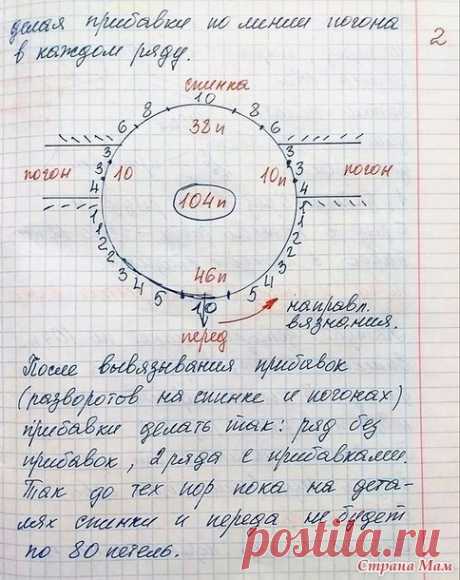 делая прибавки по линии погона
в каждом ряду.
2
спинка
10
8 8
6 38п 6
3 3
погон 3 10 10п 3 погон
4 4
1 104п 1
1 1
2 2
2 2
3 3
4 46п 4
5 10 5
перед
направл.
вязания.
После вывязывания прибавок
(разворотов на спинке и погонах)
прибавки делать так: ряд без
прибавок, 2 ряда с прибавками.
Так до тех пор пока на дета-
лях спинки и переда не будет
по 80 петель.
postila.ru
Страна Мам